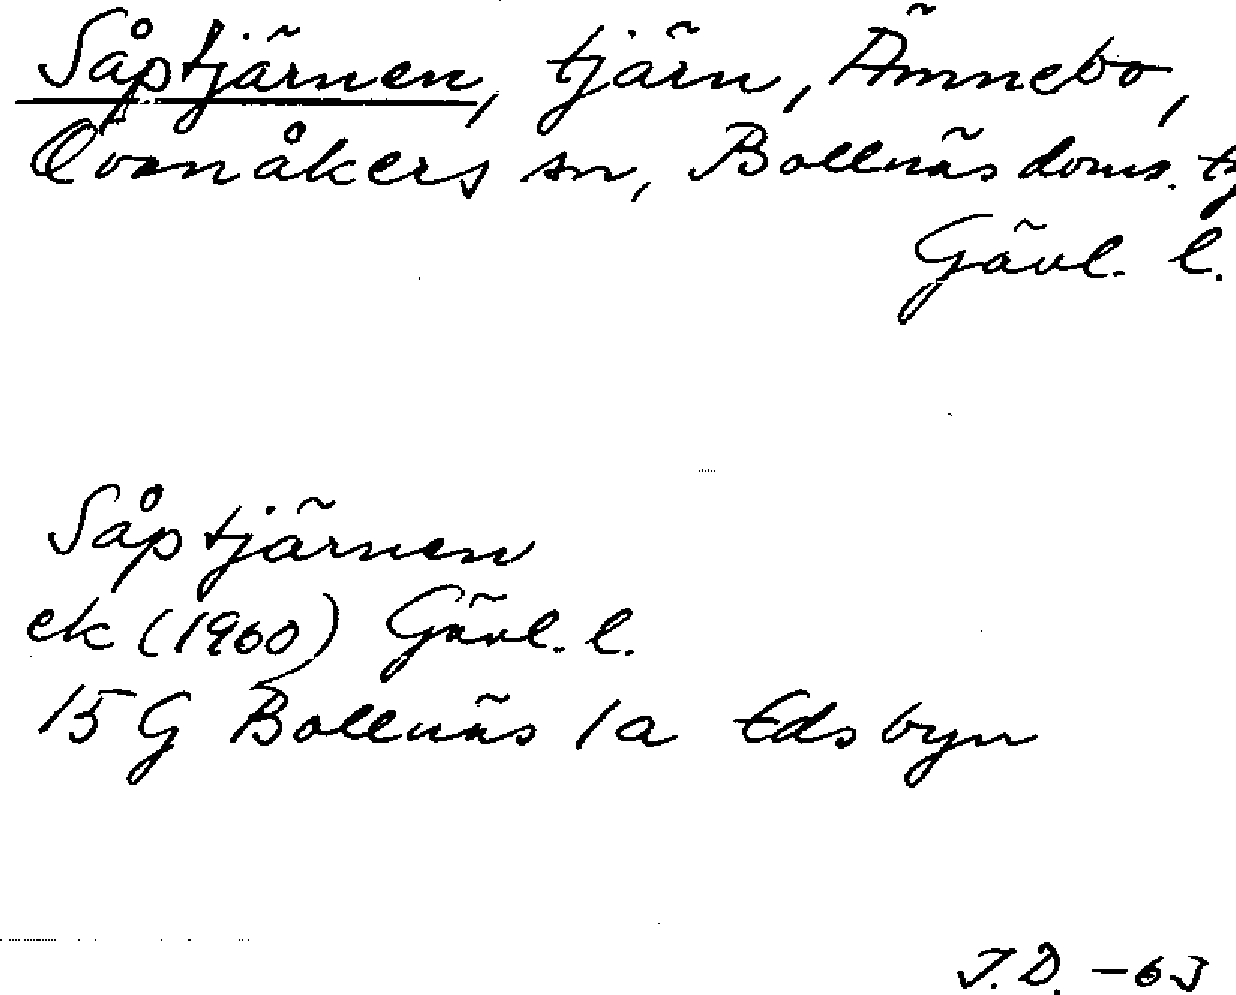 Såptjärnen, tjärn, Ämnebo,
Ovanåkers sn, Bollnäs doms. tg
Gävl. l.
Såptjärnen
ek (1960) Gävl. l.
15 G Bollnäs 1a Edsbyn
J.D. -63